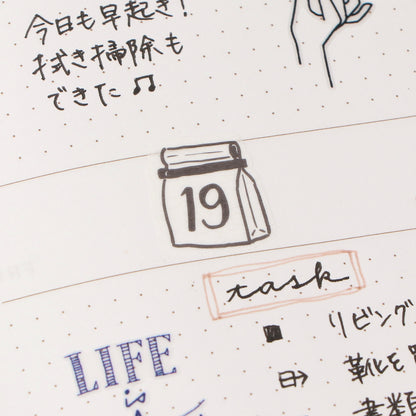 今日も早起き!
拭き掃除も
できた♫
19
task
リビング
靴を
LIFE
is